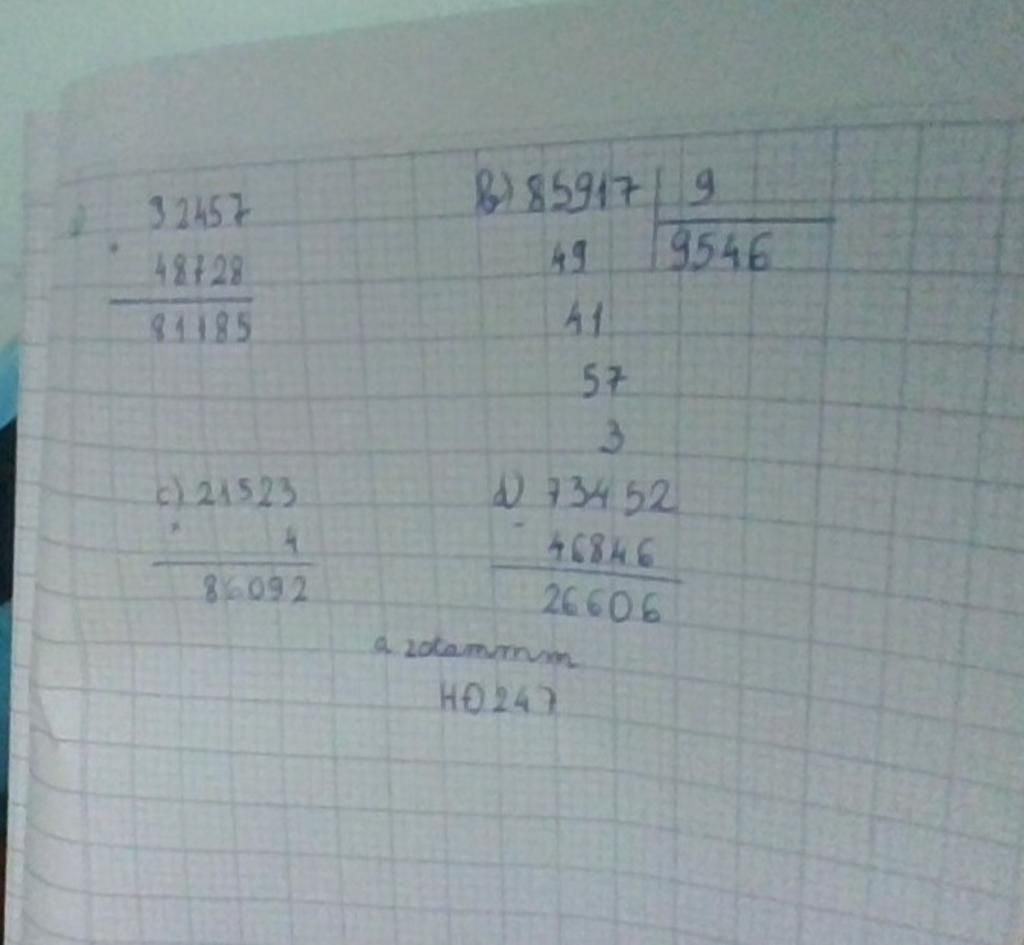 32457
48728
81185
b) 85917 9
49 9546
41
57
3
c) 21523
× 4
86092
d) 73452
- 46846
26606
HD247